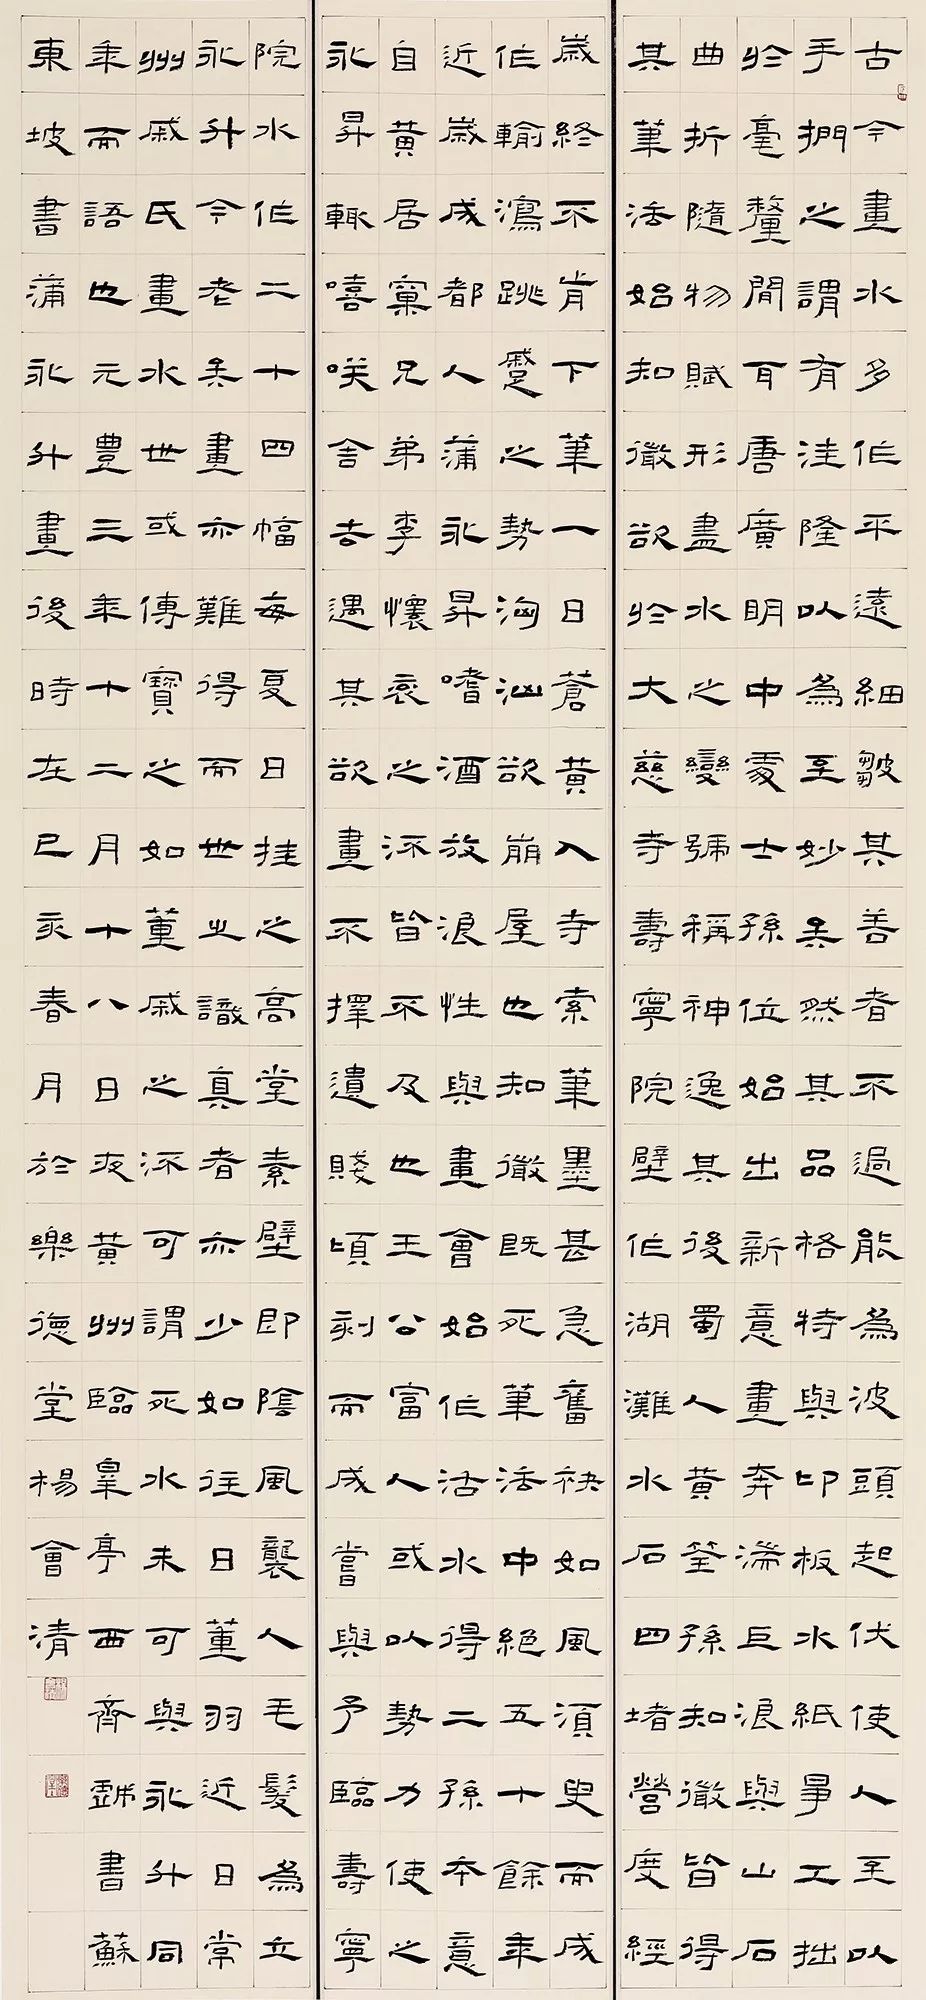 古今畫水多作平遠細皺其善者不過能為波頭起伏使人至以
手捫之謂有洼隆以為至妙矣然其品格特與印板水紙爭工拙
於毫釐間耳唐廣明中處士孫位始出新意畫奔湍巨浪與山石
曲折隨物賦形盡水之變號稱神逸其後蜀人黃筌孫知微皆得
其筆法始知微欲於大慈寺壽寧院壁作湖灘水石四堵營度經
歲終不肯下筆一日蒼黃入寺索筆墨甚急奮袂如風須臾而成
作輸瀉跳蹙之勢洶洶欲崩屋也知微既死筆法中絕五十餘年
近歲成都人蒲永昇嗜酒放浪性與畫會始作活水得二孫本意
自黃居寀兄弟李懷袞之流皆不及也王公富人或以勢力使之
永昇輒嘻笑舍去遇其欲畫不擇遺賤頃刻而成嘗與予臨壽寧
院水作二十四幅每夏日挂之高堂素壁即陰風襲人毛髮為立
永升今老矣畫亦難得而世之識真者亦少如往日董羽近日常
州戚氏畫水世或傳寶之如董戚之流可謂死水未可與永升同
年而語也元豐三年十二月十八日夜黃州臨皋亭西齊戲書蘇
東坡書蒲永升畫後時在己亥春月於樂德堂楊會清